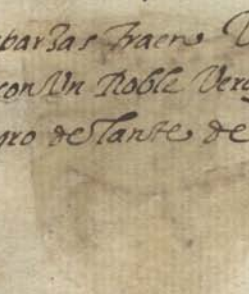 barzas traen
con Un Roble Verg
gro delante de